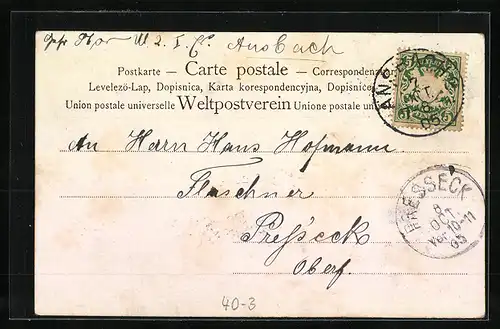 Ansbach
Postkarte – Carte postale – Correspondenz
Levelező-Lap, Dopisnica, Karta korespondencyjna, Dopisnice
Union postale universelle Weltpostverein Unione postale un
An Herrn Hans Hofmann
Flaschner
Preßeck
Oberf.
PRESSECK
8
OCT.
Vor. 10-11
05
40-3